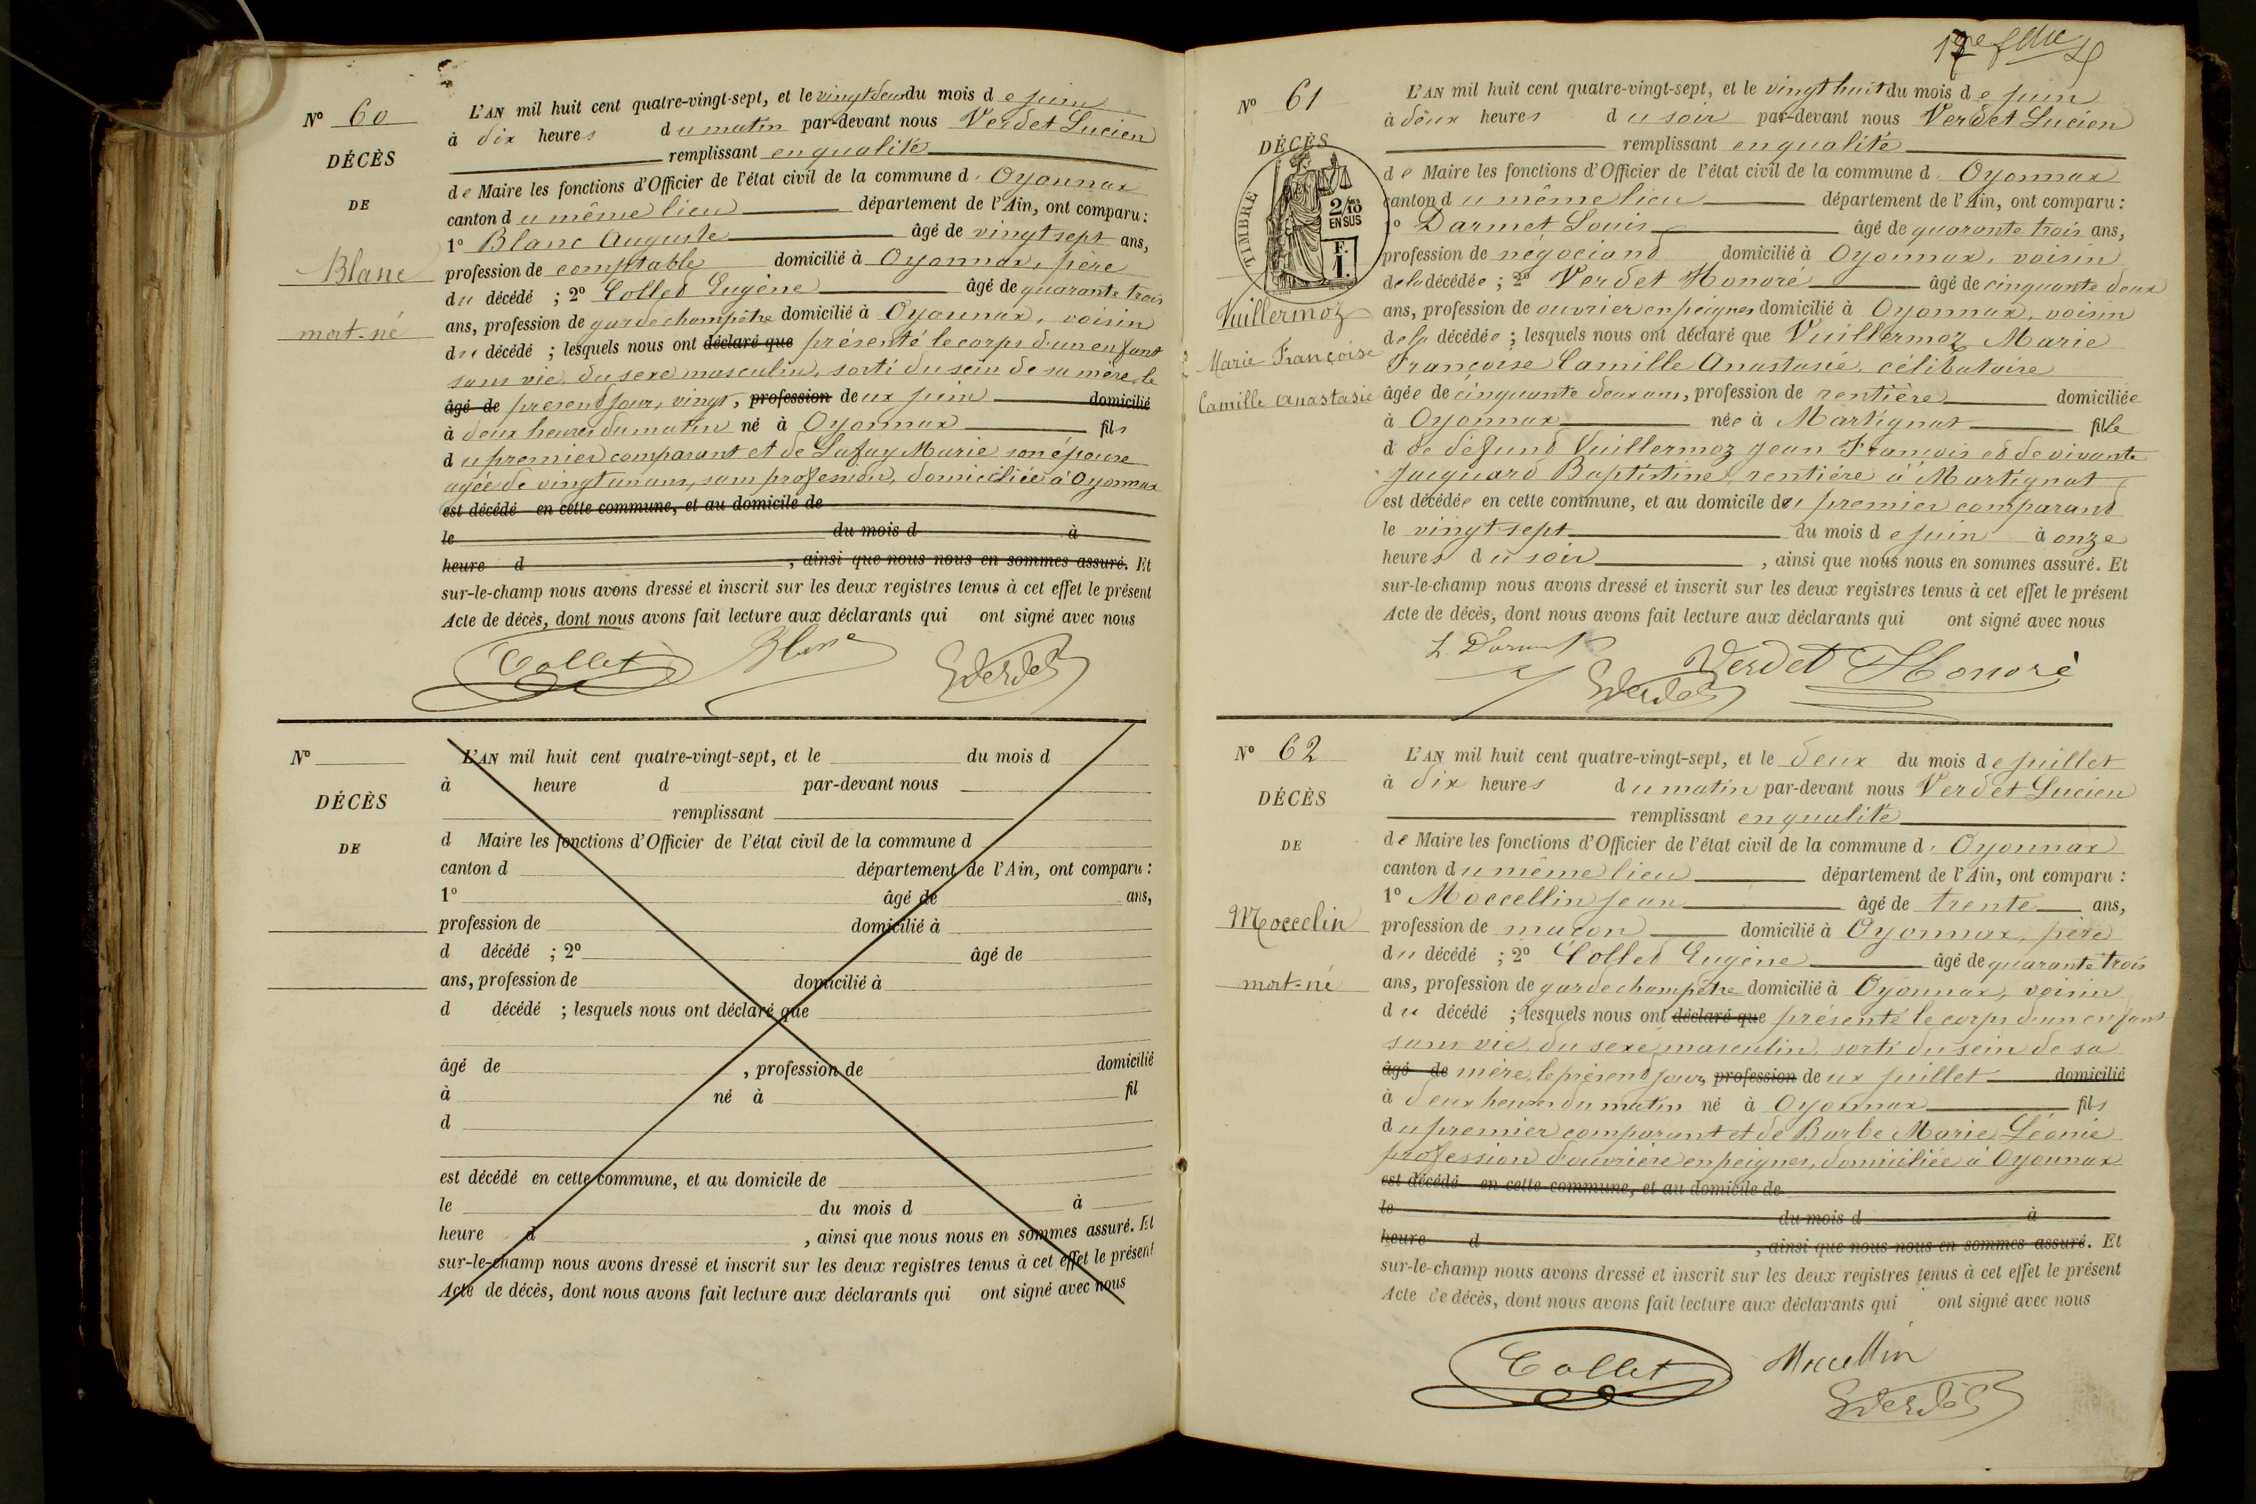 N° 60
DÉCÈS
DE
Blanc
mort-né
L'AN mil huit cent quatre-vingt-sept, et le vingt deux du mois de juin
à dix heures du matin par-devant nous Verdet Lucien
remplissant en qualité
de Maire les fonctions d'Officier de l'état civil de la commune d'Oyonnax
canton du même lieu département de l'Ain, ont comparu :
1° Blanc Auguste âgé de vingt sept ans,
profession de comptable domicilié à Oyonnax, père
du décédé ; 2° Collet Eugène âgé de quarante trois
ans, profession de garde champêtre domicilié à Oyonnax, voisin
du décédé ; lesquels nous ont déclaré que présenté le corps d'un enfant
sans vie, du sexe masculin, sorti du sein de sa mère, le
âgé de présent jour, vingt, profession deux juin domicilié
à deux heures du matin né à Oyonnax fils
du premier comparant et de Lafay Marie son épouse
agée de vingt un ans, sans profession, domiciliée à Oyonnax
est décédé en cette commune, et au domicile de
le du mois d à
heure d , ainsi que nous nous en sommes assuré. Et
sur-le-champ nous avons dressé et inscrit sur les deux registres tenus à cet effet le présent
Acte de décès, dont nous avons fait lecture aux déclarants qui ont signé avec nous
Collet Blanc Verdet
N°
DÉCÈS
DE
L'AN mil huit cent quatre-vingt-sept, et le du mois d
à heure d par-devant nous
remplissant
d Maire les fonctions d'Officier de l'état civil de la commune d
canton d département de l'Ain, ont comparu :
1° âgé de ans,
profession de domicilié à
d décédé ; 2° âgé de
ans, profession de domicilié à
d décédé ; lesquels nous ont déclaré que
âgé de , profession de domicilié
à né à fil
d
est décédé en cette commune, et au domicile de
le du mois d à
heure d , ainsi que nous nous en sommes assuré. Et
sur-le-champ nous avons dressé et inscrit sur les deux registres tenus à cet effet le présent
Acte de décès, dont nous avons fait lecture aux déclarants qui ont signé avec nous
N° 61
DÉCÈS
TIMBRE
2/10
EN SUS
F.
1.
Vuillermoz
Marie Françoise
Camille Anastasie
L'AN mil huit cent quatre-vingt-sept, et le vingt huit du mois de juin
à deux heures du soir par-devant nous Verdet Lucien
remplissant en qualité
de Maire les fonctions d'Officier de l'état civil de la commune d'Oyonnax
canton du même lieu département de l'Ain, ont comparu :
1° Darmet Louis âgé de quarante trois ans,
profession de négociant domicilié à Oyonnax, voisin
de la décédée ; 2° Verdet Honoré âgé de cinquante deux
ans, profession de ouvrier en peignes domicilié à Oyonnax, voisin
de la décédée ; lesquels nous ont déclaré que Vuillermoz Marie
Françoise Camille Anastasie, célibataire
âgée de cinquante deux ans, profession de rentière domiciliée
à Oyonnax née à Martignat fille
d de défunt Vuillermoz Jean François et de vivante
Jacquard Baptistine, rentière à Martignat
est décédée en cette commune, et au domicile du premier comparant
le vingt sept du mois de juin à onze
heures du soir , ainsi que nous nous en sommes assuré. Et
sur-le-champ nous avons dressé et inscrit sur les deux registres tenus à cet effet le présent
Acte de décès, dont nous avons fait lecture aux déclarants qui ont signé avec nous
L. Darmet Verdet Honoré
Verdet
N° 62
DÉCÈS
DE
Moccelin
mort-né
L'AN mil huit cent quatre-vingt-sept, et le deux du mois de juillet
à dix heures du matin par-devant nous Verdet Lucien
remplissant en qualité
de Maire les fonctions d'Officier de l'état civil de la commune d'Oyonnax
canton du même lieu département de l'Ain, ont comparu :
1° Moccellin Jean âgé de trente ans,
profession de maçon domicilié à Oyonnax, père
du décédé ; 2° Collet Eugène âgé de quarante trois
ans, profession de garde champêtre domicilié à Oyonnax, voisin
du décédé ; lesquels nous ont déclaré que présenté le corps d'un enfant
sans vie, du sexe masculin, sorti du sein de sa
âgé de mère, le présent jour, profession deux juillet domicilié
à deux heures du matin né à Oyonnax fils
du premier comparant et de Barbe Marie Léonie
profession d'ouvrière en peignes, domiciliée à Oyonnax
est décédé en cette commune, et au domicile de
le du mois d à
heure d , ainsi que nous nous en sommes assuré. Et
sur-le-champ nous avons dressé et inscrit sur les deux registres tenus à cet effet le présent
Acte de décès, dont nous avons fait lecture aux déclarants qui ont signé avec nous
Collet Moccellin
Verdet